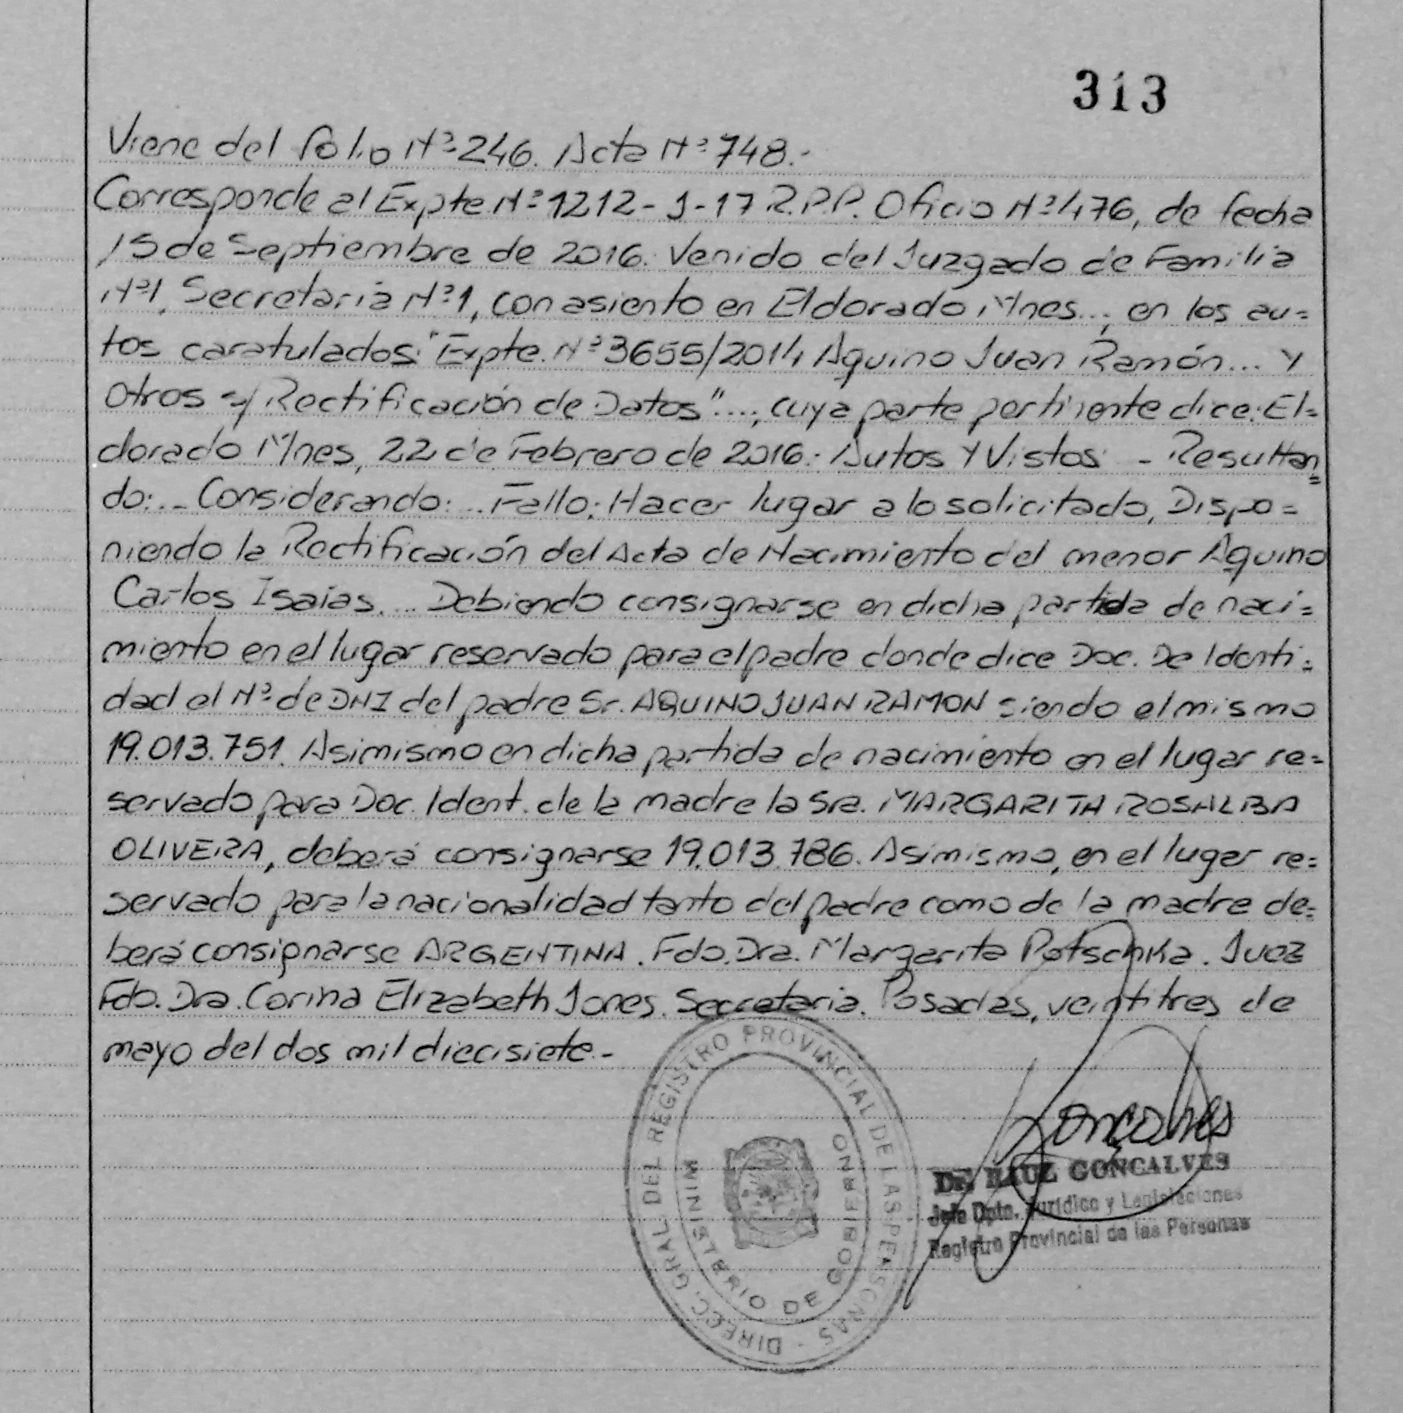 313
Viene del folio Nº 246. Acta Nº 748.-
Corresponde al Expte Nº 1212-J-17 R.P.P. Oficio Nº 476, de fecha
15 de Septiembre de 2016. Venido del Juzgado de Familia
Nº1, Secretaria Nº1, con asiento en Eldorado Mnes..., en los au=
tos caratulados: "Expte. Nº 3655/2014 Aquino Juan Ramón... Y
Otros s/ Rectificación de Datos"..., cuya parte pertinente dice: El=
dorado Mnes, 22 de Febrero de 2016.- Autos Y Vistos: - Resultan=
do: .. Considerando: .. Fallo: Hacer lugar a lo solicitado, Dispo=
niendo la Rectificación del Acta de Nacimiento del menor Aquino
Carlos Isaías... Debiendo consignarse en dicha partida de naci=
miento en el lugar reservado para el padre donde dice Doc. De Identi=
dad el Nº. de DNI del padre Sr. AQUINO JUAN RAMON siendo el mismo
19.013.751. Asimismo en dicha partida de nacimiento en el lugar re=
servado para Doc. Ident. de la madre la Sra. MARGARITA ROSALBA
OLIVERA, deberá consignarse 19.013.786. Asimismo, en el lugar re=
servado para la nacionalidad tanto del padre como de la madre de=
berá consignarse ARGENTINA. Fdo. Dra. Margarita Potschka. Juez
Fdo. Dra. Corina Elizabeth Jones. Secretaria. Posadas, veintitres de
mayo del dos mil diecisiete.-
DIRECC. GRAL. DEL REGISTRO PROVINCIAL DE LAS PERSONAS -
MINISTERIO DE GOBIERNO
Goncalves
Dr. RAUL GONCALVES
Jefe Dpto. Jurídico y Legislaciones
Registro Provincial de las Personas